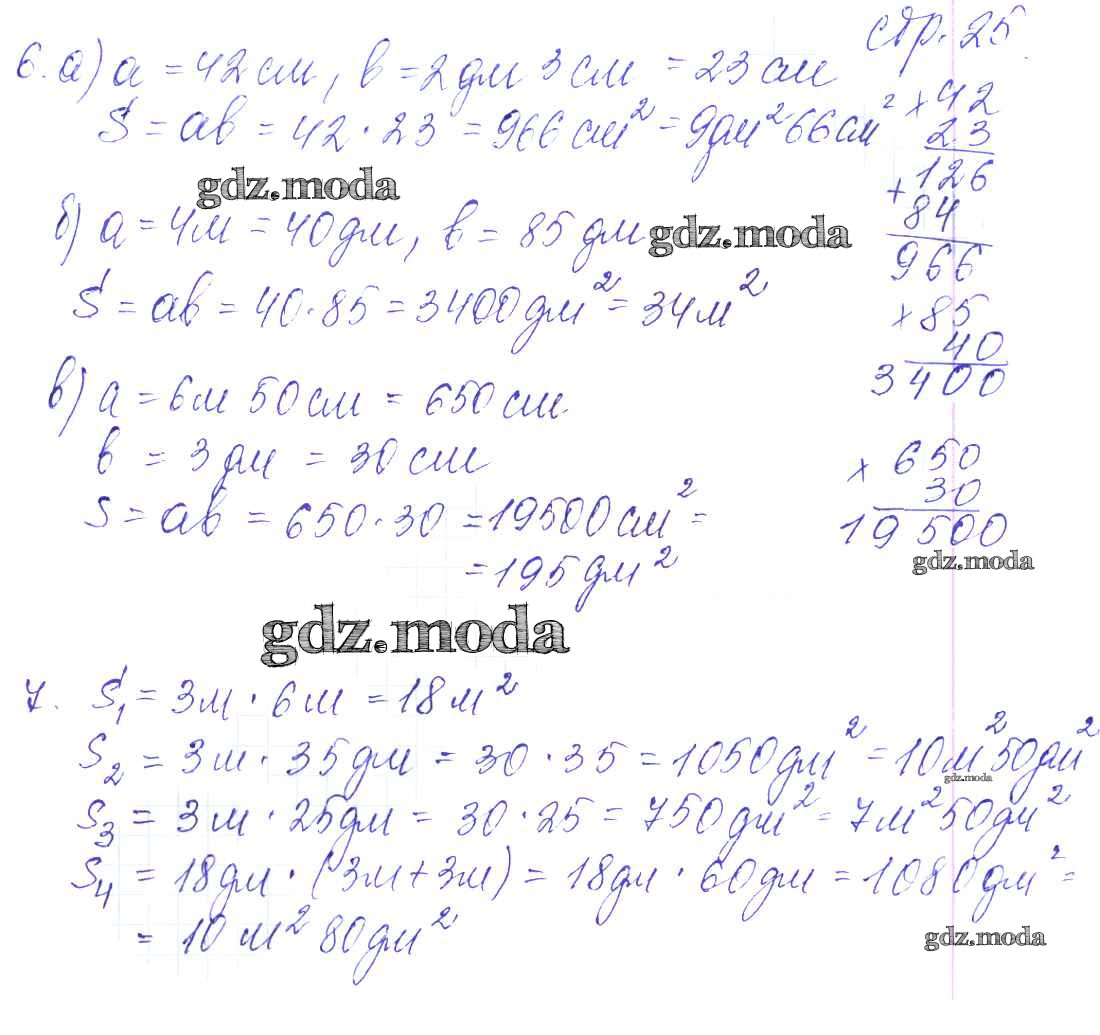 стр. 25
6. а) a = 42 см, в = 2 дм 3 см = 23 см
S = ав = 42 · 23 = 966 см² = 9 дм² 66 см²
× 42
23
126
+ 84
966
gdz.moda
б) a = 4 м = 40 дм, в = 85 дм
gdz.moda
S = ав = 40 · 85 = 3400 дм² = 34 м²
× 85
40
3400
в) a = 6 м 50 см = 650 см
в = 3 дм = 30 см
S = ав = 650 · 30 = 19500 см² =
= 195 дм²
× 650
30
19500
gdz.moda
gdz.moda
7. S₁ = 3 м · 6 м = 18 м²
S₂ = 3 м · 35 дм = 30 · 35 = 1050 дм² = 10 м² 50 дм²
gdz.moda
S₃ = 3 м · 25 дм = 30 · 25 = 750 дм² = 7 м² 50 дм²
S₄ = 18 дм · (3 м + 3 м) = 18 дм · 60 дм = 1080 дм² =
= 10 м² 80 дм²
gdz.moda